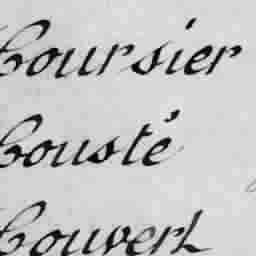 Coursier
Cousté
Couvert